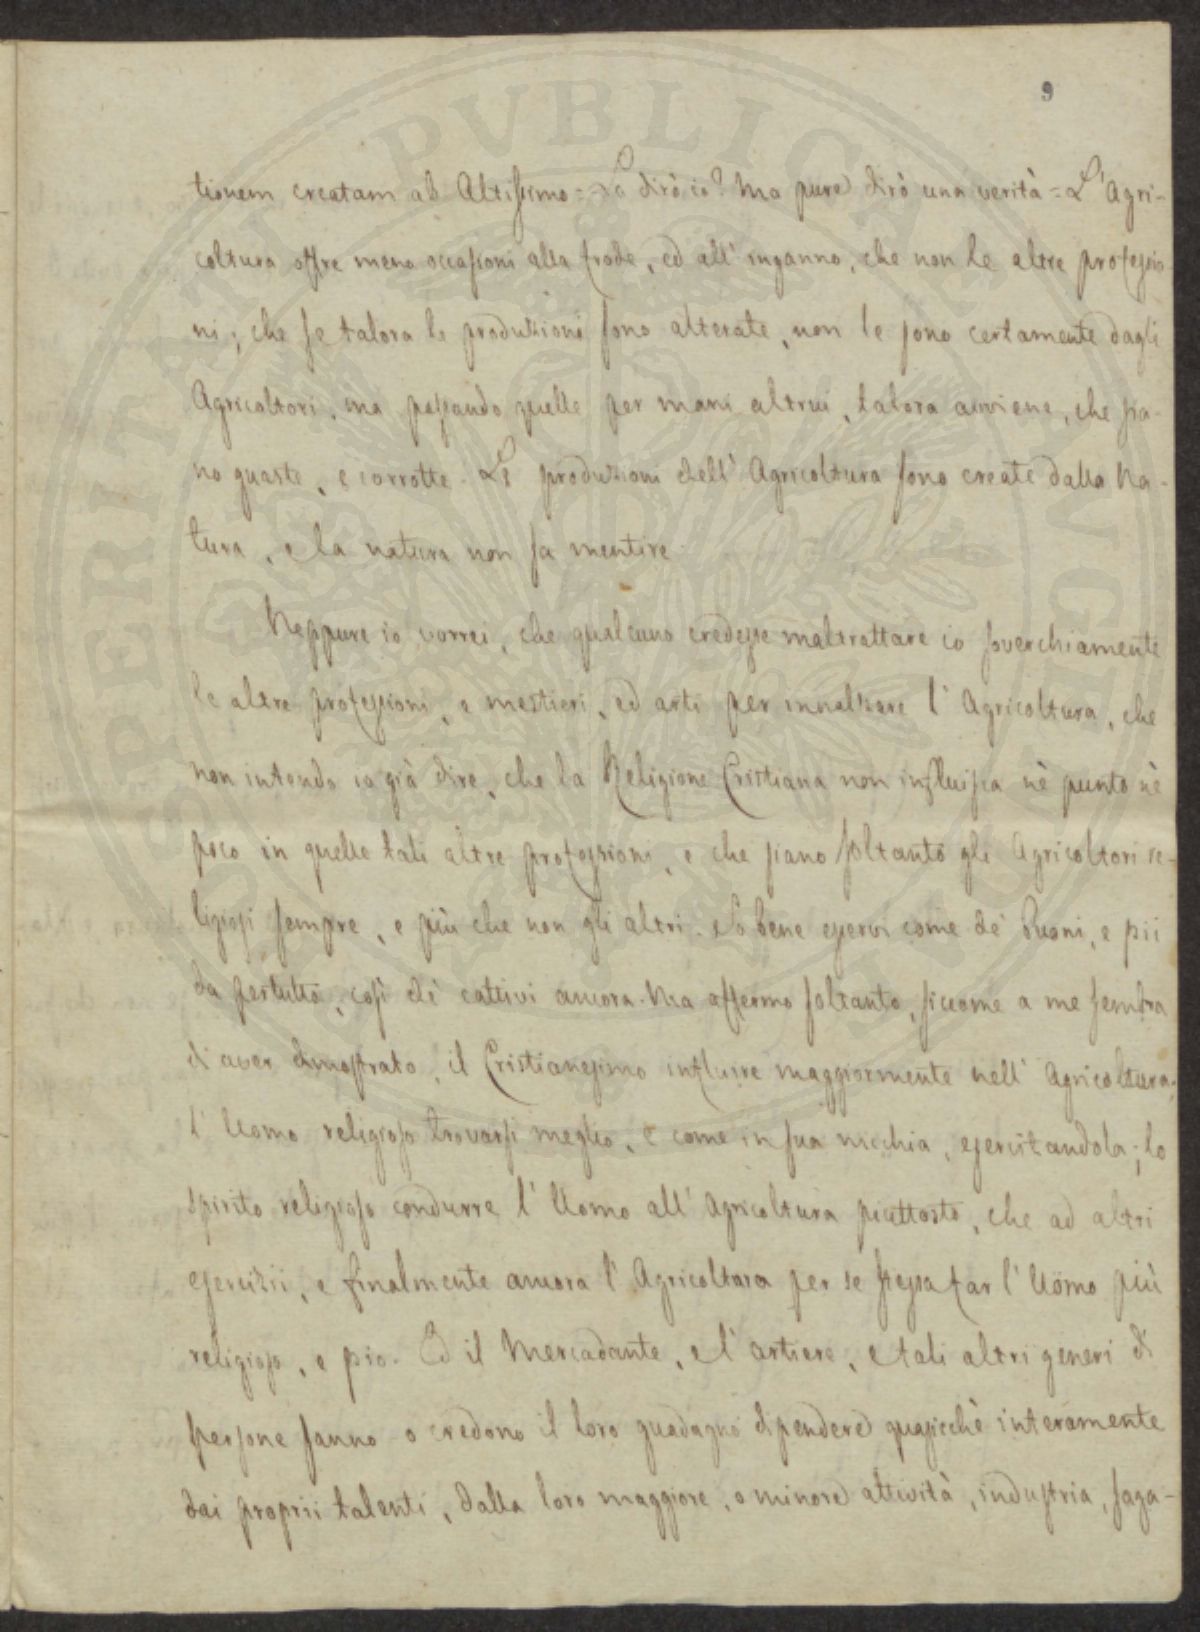 9
tionem creatam ab Altissimo = Lo dirò io? Ma pure dirò una verità = L'Agri-
coltura offre meno occasioni alla frode, ed all'inganno, che non le altre professio
ni; che se talora le produzioni sono alterate, non le sono certamente dagli
Agricoltori, ma passando quelle per mani altrui, talora avviene, che sia-
no guaste, e corrotte. Le produzioni dell'Agricoltura sono create dalla Na-
tura, e la natura non sa mentire.
Neppure io vorrei, che qualcuno credesse maltrattare io soverchiamente
le altre professioni, e mestieri, ed arti per innalzare l'Agricoltura, che
non intendo io già dire, che la Religione Cristiana non influisca nè punto nè
poco in quelle tali altre professioni, e che siano soltanto gli Agricoltori re-
ligiosi sempre, e più che non gli altri. So bene esservi come de' buoni, e pii
da pertutto, così de' cattivi ancora. Ma affermo soltanto, siccome a me sembra
di aver dimostrato, il Cristianesimo influire maggiormente nell'Agricoltura;
l'Uomo religioso trovarsi meglio, e come in sua nicchia, esercitandola; lo
spirito religioso condurre l'Uomo all'Agricoltura piuttosto, che ad altri
esercizii, e finalmente ancora l'Agricoltura per se stessa far l'Uomo più
religioso, e pio. Ed il Mercadante, e l'artiere, e tali altri generi di
persone sanno o credono il loro guadagno dipendere quasicchè interamente
dai proprii talenti, dalla loro maggiore, o minore attività, industria, saga-
PUBLICAE
SPERITATI